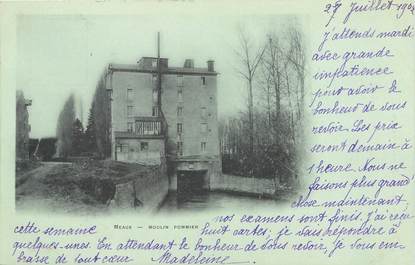 27 Juillet 190
J'attends mardi
avec grande
impatience
pour avoir le
bonheur de vous
revoir. Les prix
seront demain à
1 heure. Nous ne
faisons plus grand'
chose maintenant;
MEAUX — MOULIN POMMIER
nos examens sont finis. J'ai reçu
cette semaine huit cartes; je vais répondre à
quelques-unes. En attendant le bonheur de vous revoir, je vous em-
brasse de tout cœur Madeleine.